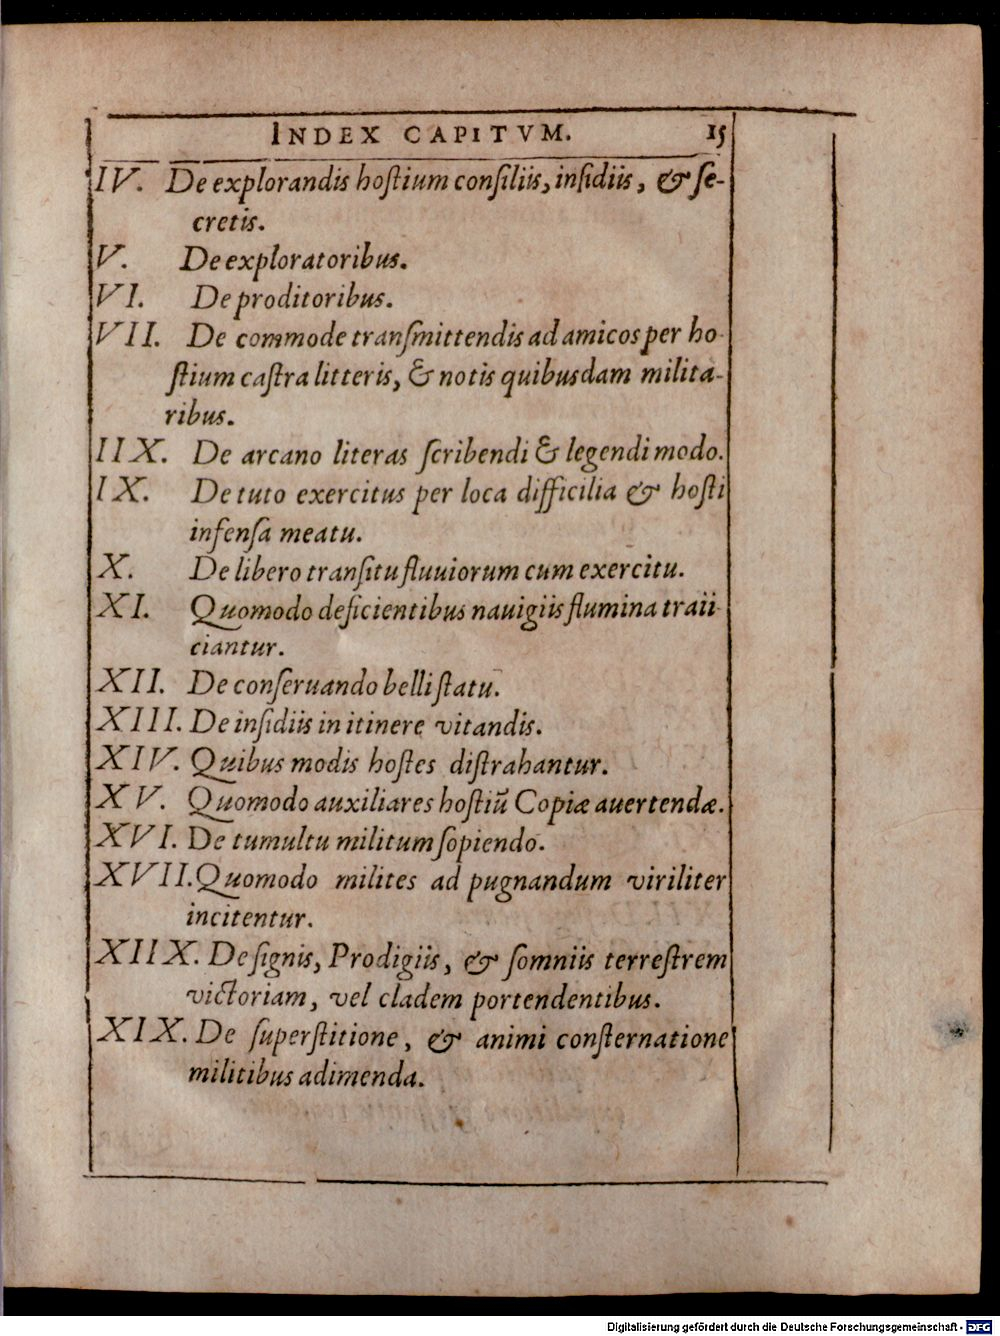 INDEX CAPITVM. 15
IV. De explorandis hoſtium conſiliis, inſidiis, & ſe-
cretis.
V. De exploratoribus.
VI. De proditoribus.
VII. De commode tranſmittendis ad amicos per ho-
ſtium caſtra litteris, & notis quibusdam milita-
ribus.
IIX. De arcano literas ſcribendi & legendi modo.
IX. De tuto exercitus per loca difficilia & hoſti
infenſa meatu.
X. De libero tranſitu fluuiorum cum exercitu.
XI. Quomodo deficientibus nauigiis flumina traii-
ciantur.
XII. De conſeruando belli ſtatu.
XIII. De inſidiis in itinere vitandis.
XIV. Quibus modis hoſtes diſtrahantur.
XV. Quomodo auxiliares hoſtiū Copiæ auertendæ.
XVI. De tumultu militum ſopiendo.
XVII. Quomodo milites ad pugnandum viriliter
incitentur.
XIIX. De ſignis, Prodigiis, & ſomniis terreſtrem
victoriam, vel cladem portendentibus.
XIX. De ſuperſtitione, & animi conſternatione
militibus adimenda.
Digitalisierung gefördert durch die Deutsche Forschungsgemeinschaft - DFG